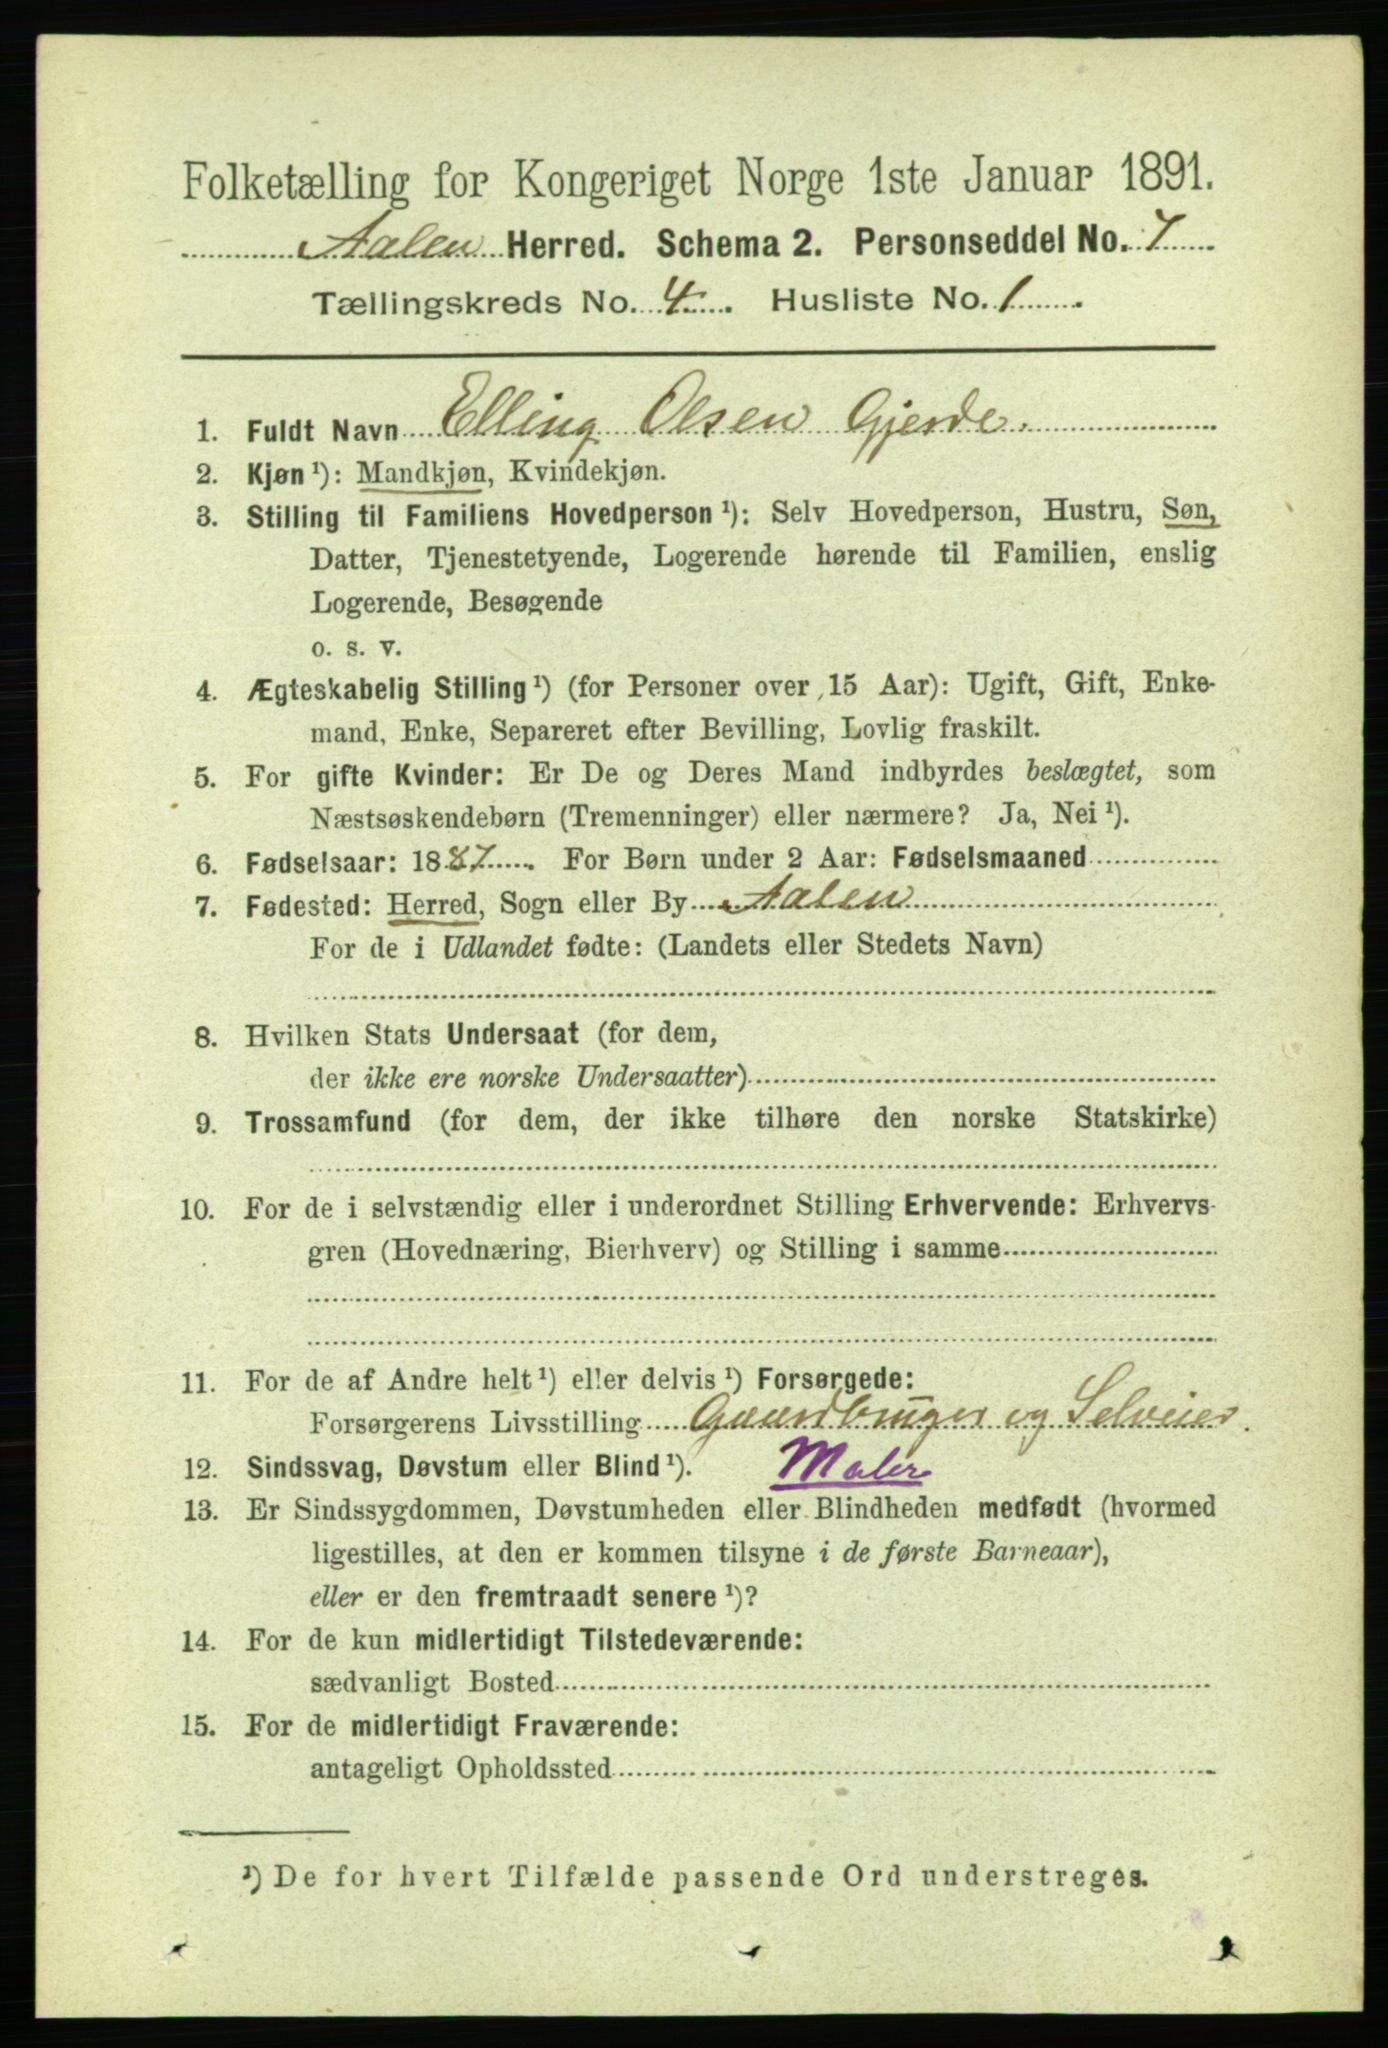 Folketælling for Kongeriget Norge 1ste Januar 1891.
Aalen Herred. Schema 2. Personseddel No. 7
Tællingskreds No. 4. Husliste No. 1.
1. Fuldt Navn Elling Olsen Gjerde.
2. Kjøn ¹): Mandkjøn, Kvindekjøn.
3. Stilling til Familiens Hovedperson ¹): Selv Hovedperson, Hustru, Søn,
Datter, Tjenestetyende, Logerende hørende til Familien, enslig
Logerende, Besøgende
o. s. v.
4. Ægteskabelig Stilling ¹) (for Personer over 15 Aar): Ugift, Gift, Enke-
mand, Enke, Separeret efter Bevilling, Lovlig fraskilt.
5. For gifte Kvinder: Er De og Deres Mand indbyrdes beslægtet, som
Næstsøskendebørn (Tremenninger) eller nærmere? Ja, Nei ¹).
6. Fødselsaar: 1887. For Børn under 2 Aar: Fødselsmaaned
7. Fødested: Herred, Sogn eller By Aalen
For de i Udlandet fødte: (Landets eller Stedets Navn)
8. Hvilken Stats Undersaat (for dem,
der ikke ere norske Undersaatter)
9. Trossamfund (for dem, der ikke tilhøre den norske Statskirke)
10. For de i selvstændig eller i underordnet Stilling Erhvervende: Erhvervs-
gren (Hovednæring, Bierhverv) og Stilling i samme
11. For de af Andre helt ¹) eller delvis ¹) Forsørgede:
Forsørgerens Livsstilling Gaardbruger og Selveier.
12. Sindssvag, Døvstum eller Blind ¹). Maler
13. Er Sindssygdommen, Døvstumheden eller Blindheden medfødt (hvormed
ligestilles, at den er kommen tilsyne i de første Barneaar),
eller er den fremtraadt senere ¹)?
14. For de kun midlertidigt Tilstedeværende:
sædvanligt Bosted
15. For de midlertidigt Fraværende:
antageligt Opholdssted
¹) De for hvert Tilfælde passende Ord understreges.